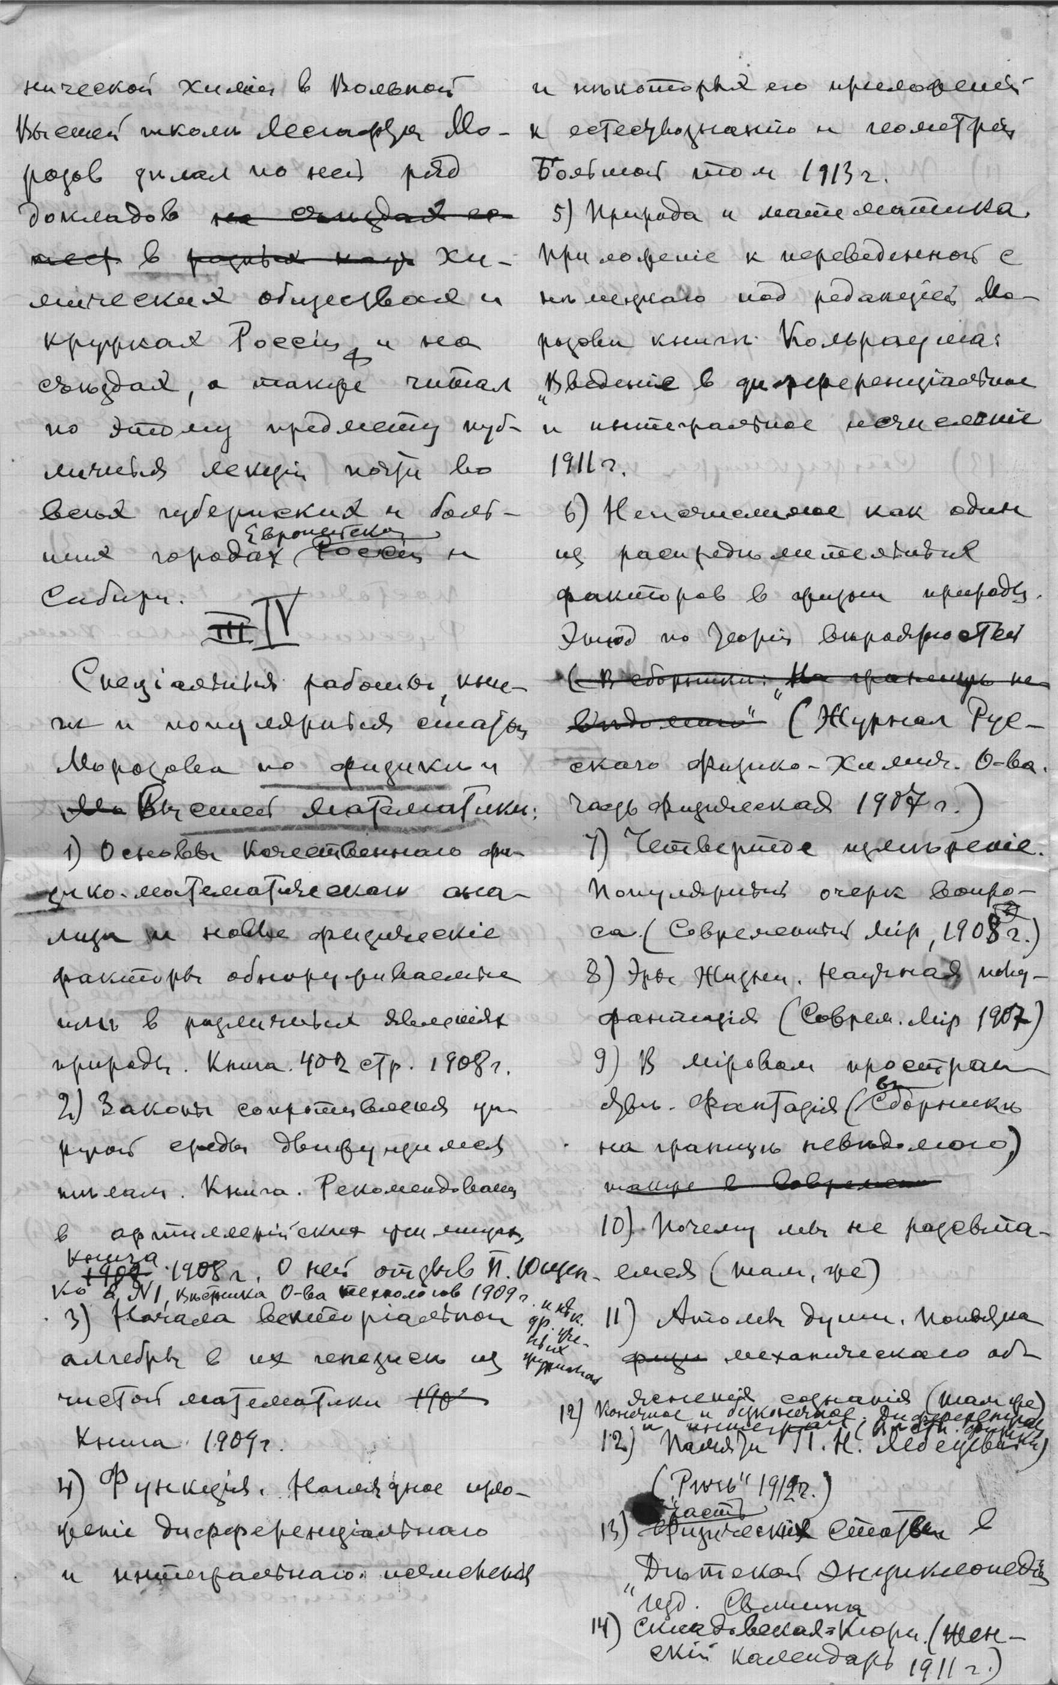 нической химіи в Вольной
Высшей школѣ Лесгафта Мо-
розов дѣлал по ней ряд
докладов на съѣздах ес-
тест в разных научн Хи-
мических обществах и
кружках Россіи и на
съѣздах, а также читал
по этому предмету пуб-
личныя лекціи почти во
всѣх губернских и боль-
ших городах Европейской Россіи и
Сибири.
III IV
Спеціальныя работы, кни-
ги и популярныя статьи
Морозова по физикѣ и
Высшей математикѣ:
1) Основы качественнаго фи-
зико-математическаго ана-
лиза и новые физическіе
факторы обнаруживаемые
имъ в различных явленіях
природы. Книга. 402 стр. 1908 г.
2) Законы сопротивленія уп-
ругой среды движущимся
тѣлам. Книга. Рекомендована
в артиллерійских училищах
Книга 1908 г. О ней отзыв П. Ющен-
ко в №1, Вѣстника О-ва технологов 1909 г. и нѣк.
др. уче-
ных
журналах
3) Начала векторіальной
алгебры в их генезисѣ из
чистой математики 190
Книга 1909 г.
4) Функція. Наглядное изло-
женіе дифференціальнаго
и интегральнаго исчисленія
и нѣкоторых его приложеній
к естествознанію и геометріи
Большой том 1913 г.
5) Природа и математика
Приложеніе к переведенной с
нѣмецкаго под редакціей Мо-
розова книги Кольрауша:
„Введеніе в дифференціальное
и интегральное исчисленіе
1911 г.
6) Неисчислимое как один
из распредѣлительных
факторов в жизни природы.
Этюд по Теоріи вѣроятностей
(В сборникѣ: „На границѣ не-
вѣдомаго" (Журнал Рус-
скаго Физико-Химич. О-ва.
часть физическая 1907 г.)
7) Четвертое измѣреніе.
Популярный очерк вопро-
са. (Современный Мір, 1908 г.)
8) Эры Жизни. Научная полу-
фантазія (Соврем. Мір 1907)
9) В міровом простран-
ствѣ. Фантазія (в Сборникѣ
на границѣ невѣдомаго,)
также в Современ
10) Почему мы не разсыпа-
емся (там, же)
11) Атомы души. Попытка
физи механическаго объ-
ясненія сознанія (там же)
12) Конечное и безконечное. Дифференціал
и интеграл (Вѣстн. Физики)
12) Памяти П. Н. Лебедева
(„Рѣчь" 1912 г.)
13) часть Физическія Статьи в
„Дѣтской Энциклопедіи
изд. Сытина
14) Складовская-Кюри. (Жен-
скій календарь 1911 г.)